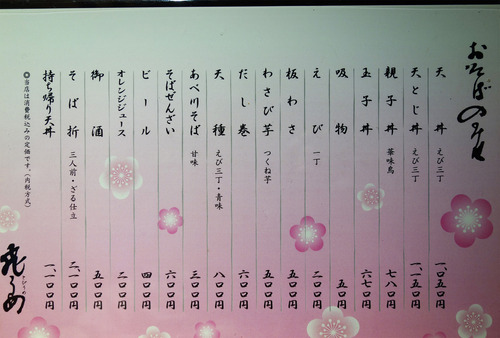 天丼 えび三丁 一、〇五〇円
天とじ丼 えび三丁 一、一五〇円
親子丼 華味鳥 七八〇円
玉子丼 六七〇円
吸物 五〇円
えび 一丁 二〇〇円
板わさ 五〇〇円
わさび芋 つくね芋 五〇〇円
だし巻 六〇〇円
天種 えび三丁・青味 八〇〇円
あべ川そば 甘味 三〇〇円
そばぜんざい 六〇〇円
ビール 四〇〇円
オレンジジュース 二〇〇円
御酒 五〇〇円
そば折 三人前・ざる仕立 二、一〇〇円
持ち帰り天丼 一、一〇〇円
◎当店は消費税込みの定価です。(内税方式)